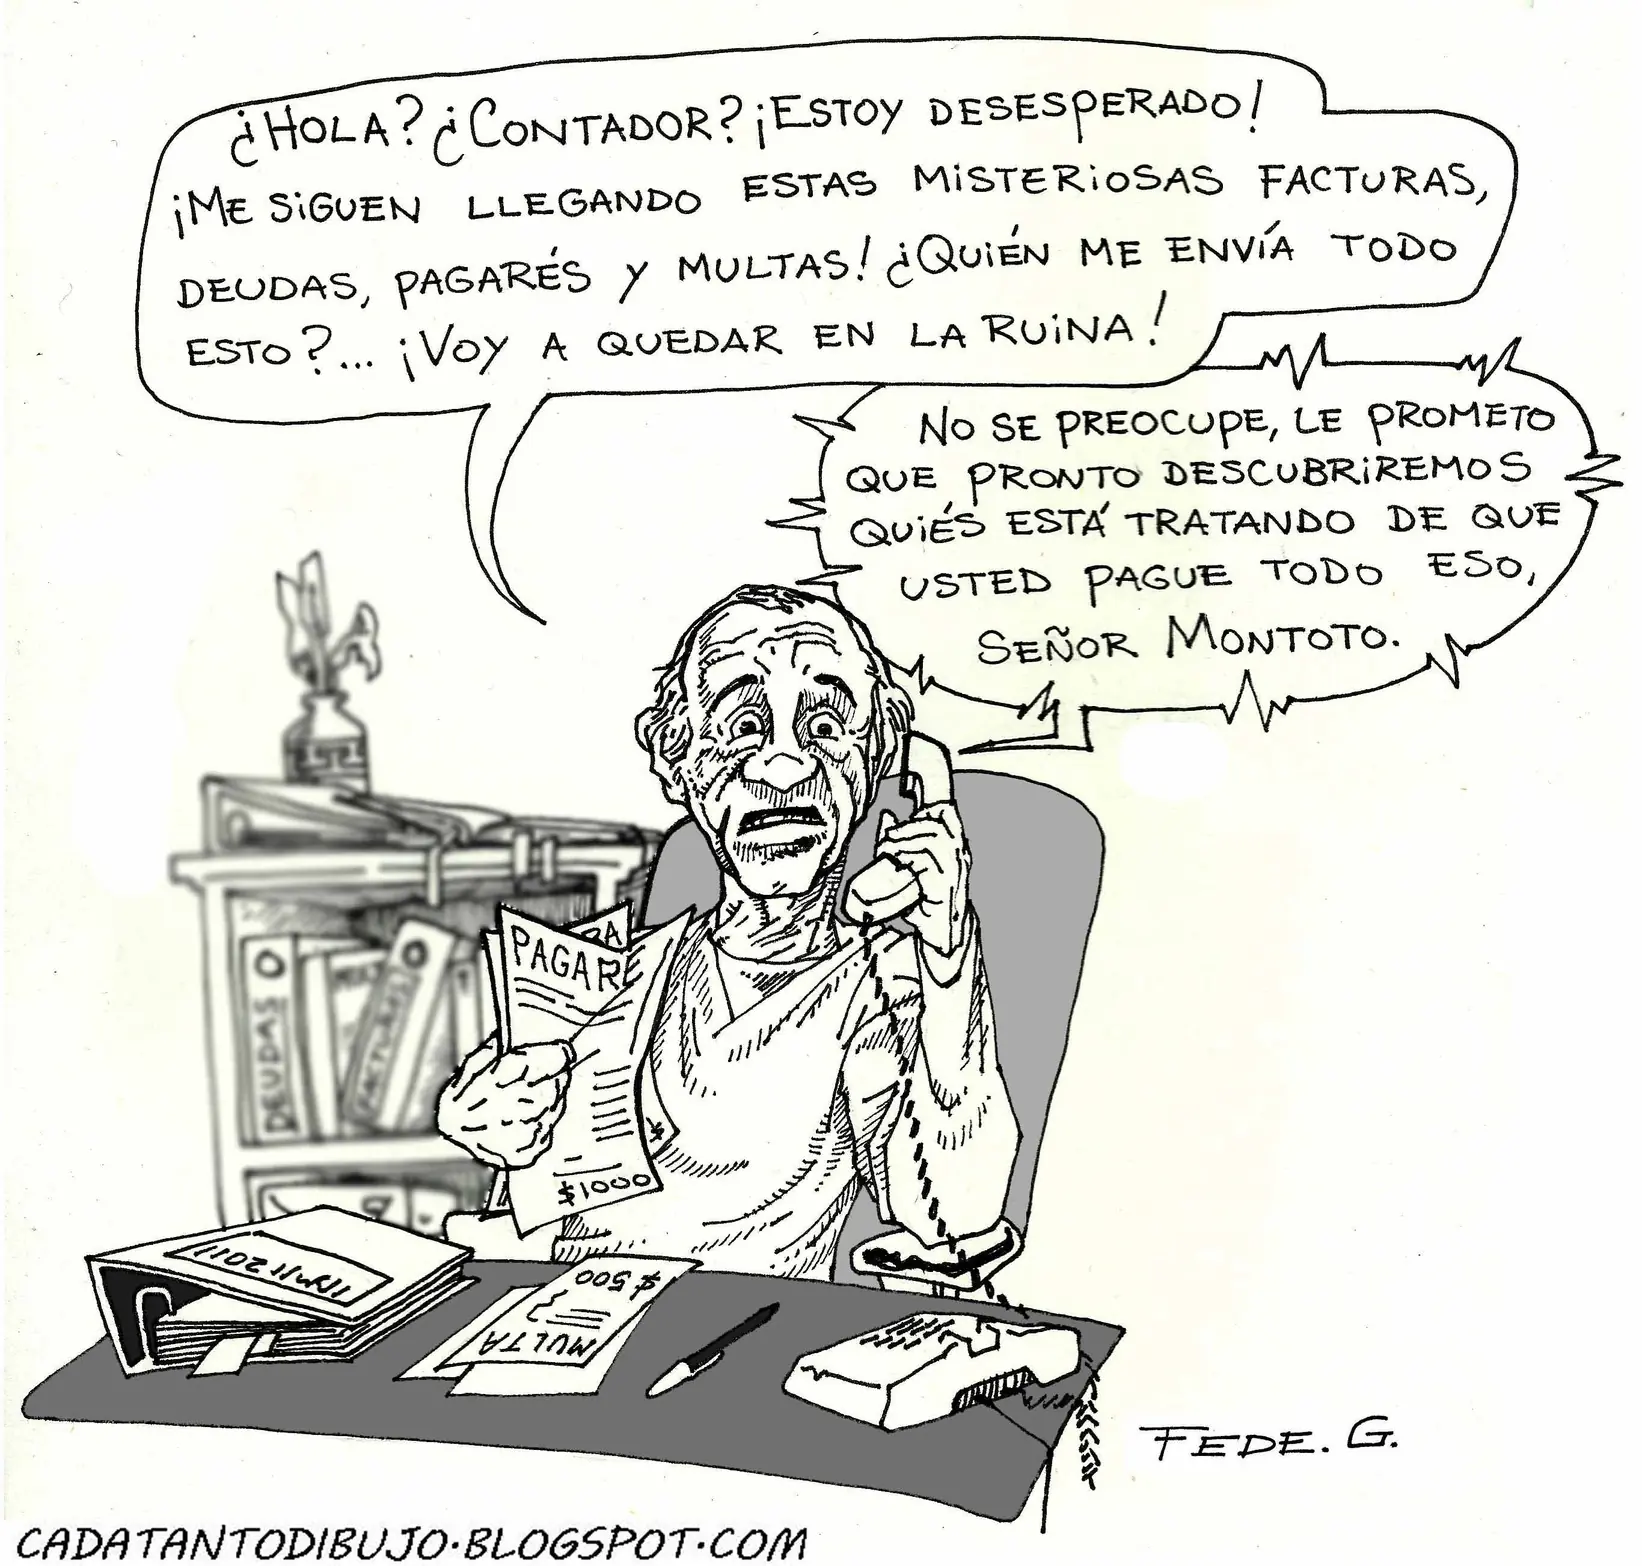 ¿HOLA? ¿CONTADOR? ¡ESTOY DESESPERADO!
¡ME SIGUEN LLEGANDO ESTAS MISTERIOSAS FACTURAS,
DEUDAS, PAGARÉS Y MULTAS! ¿QUIÉN ME ENVÍA TODO
ESTO?... ¡VOY A QUEDAR EN LA RUINA!
NO SE PREOCUPE, LE PROMETO
QUE PRONTO DESCUBRIREMOS
QUIÉS ESTÁ TRATANDO DE QUE
USTED PAGUE TODO ESO,
SEÑOR MONTOTO.
PAGARE
DEUDAS
FACTURAS
$
$1000
$500
MULTA
FEDE. G.
CADATANTODIBUJO.BLOGSPOT.COM